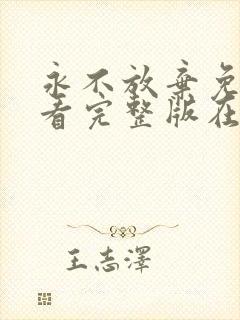 永不放弃免
看完整版在
王志泽